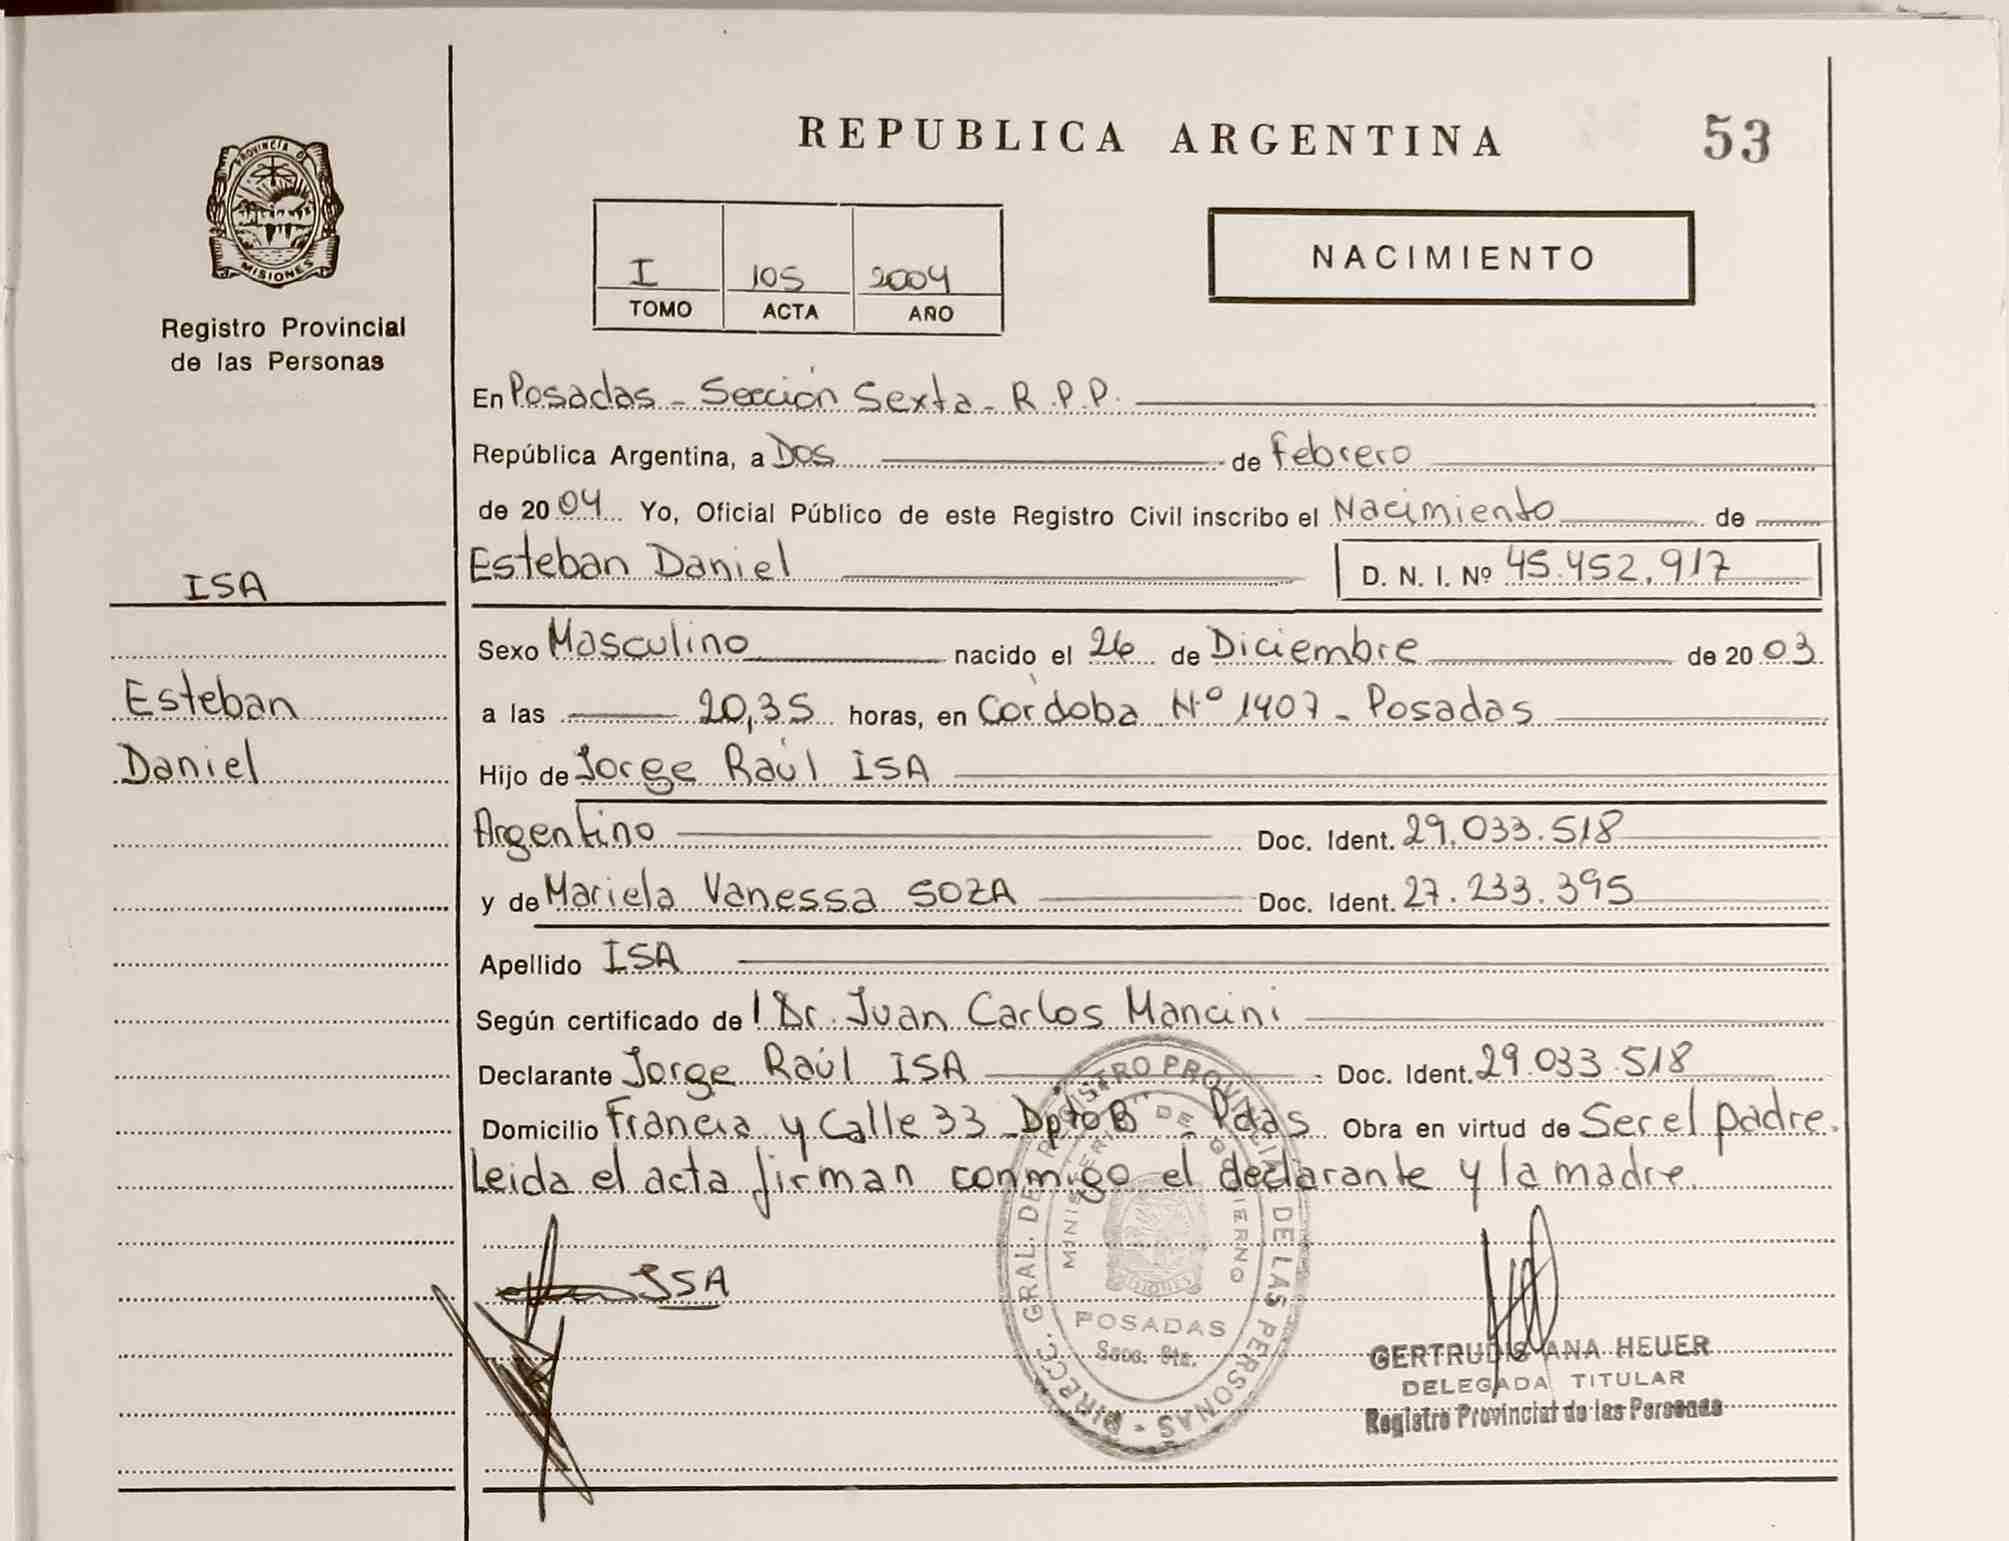 REPUBLICA ARGENTINA
53
PROVINCIA DE
MISIONES
Registro Provincial
de las Personas
I 105 2004
TOMO ACTA AÑO
NACIMIENTO
En Posadas - Sección Sexta - R.P.P.
República Argentina, a Dos de Febrero
de 2004 Yo, Oficial Público de este Registro Civil inscribo el Nacimiento de
Esteban Daniel D. N. I. Nº 45.452.917
ISA
Esteban
Daniel
Sexo Masculino nacido el 26 de Diciembre de 2003
a las 20,35 horas, en Córdoba Nº 1407 - Posadas
Hijo de Jorge Raúl ISA
Argentino Doc. Ident. 29.033.518
y de Mariela Vanessa SOZA Doc. Ident. 27.233.395
Apellido ISA
Según certificado de l Dr. Juan Carlos Mancini
Declarante Jorge Raúl ISA Doc. Ident. 29.033.518
Domicilio Francia y Calle 33 Dpto B - Pdas Obra en virtud de Ser el padre.
Leida el acta firman conmigo el declarante y la madre.
ISA
DIRECC. GRAL. DE REGISTRO PROVINCIAL DE LAS PERSONAS
MINISTERIO DE GOBIERNO
POSADAS
Secc. 6ta.
GERTRUDIS ANA HEUER
DELEGADA TITULAR
Registro Provincial de las Personas